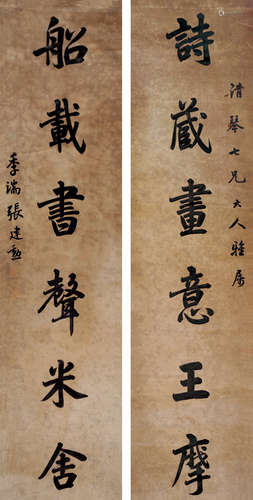 清琴七兄大人雅屬
詩蔵畫意王摩
船載書聲米舍
季端張建勳